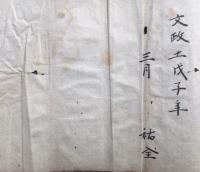 文政十一戊子年
三月　祐全